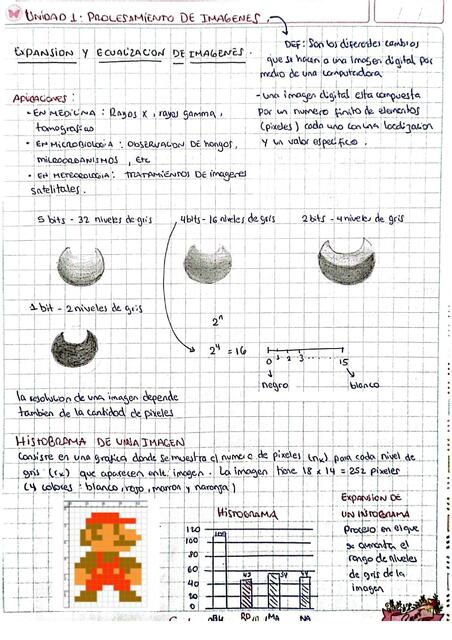 UNIDAD 1: PROCESAMIENTO DE IMAGENES.
EXPANSION Y ECUALIZACION DE IMAGENES.
DEF: Son los diferentes cambios
que se hacen a una imagen digital por
medio de una computadora
- una imagen digital esta compuesta
por un numero finito de elementos
(pixeles) cada uno con una localizacion
y un valor especifico.
APLICACIONES:
• EN MEDICINA: Rayos X, rayos gamma,
tomografias
• EN MICROBIOLOGIA: OBSERVACION DE hongos,
MICROORGANISMOS, etc
• EN METEOROLOGIA: TRATAMIENTOS DE imagenes
satelitales.
5 bits - 32 niveles de gris
4 bits - 16 niveles de gris
2 bits - 4 niveles de gris
1 bit - 2 niveles de gris
2ⁿ
2⁴ = 16
0 1 2 3 ...... 15
negro
blanco
la resolucion de una imagen depende
tambien de la cantidad de pixeles
HISTOGRAMA DE UNA IMAGEN
Consiste en una grafica donde se muestra el numero de pixeles (nk) para cada nivel de
gris (rk) que aparecen en la imagen. La imagen tiene 18 x 14 = 252 pixeles
(4 colores: blanco, rojo, marron y naranja)
HISTOGRAMA
120
100
80
60
40
20
0
43
54
RO
MA
NA
EXPANSION DE
UN HISTOGRAMA
Proceso en el que
se aumenta el
rango de niveles
de gris de la
imagen